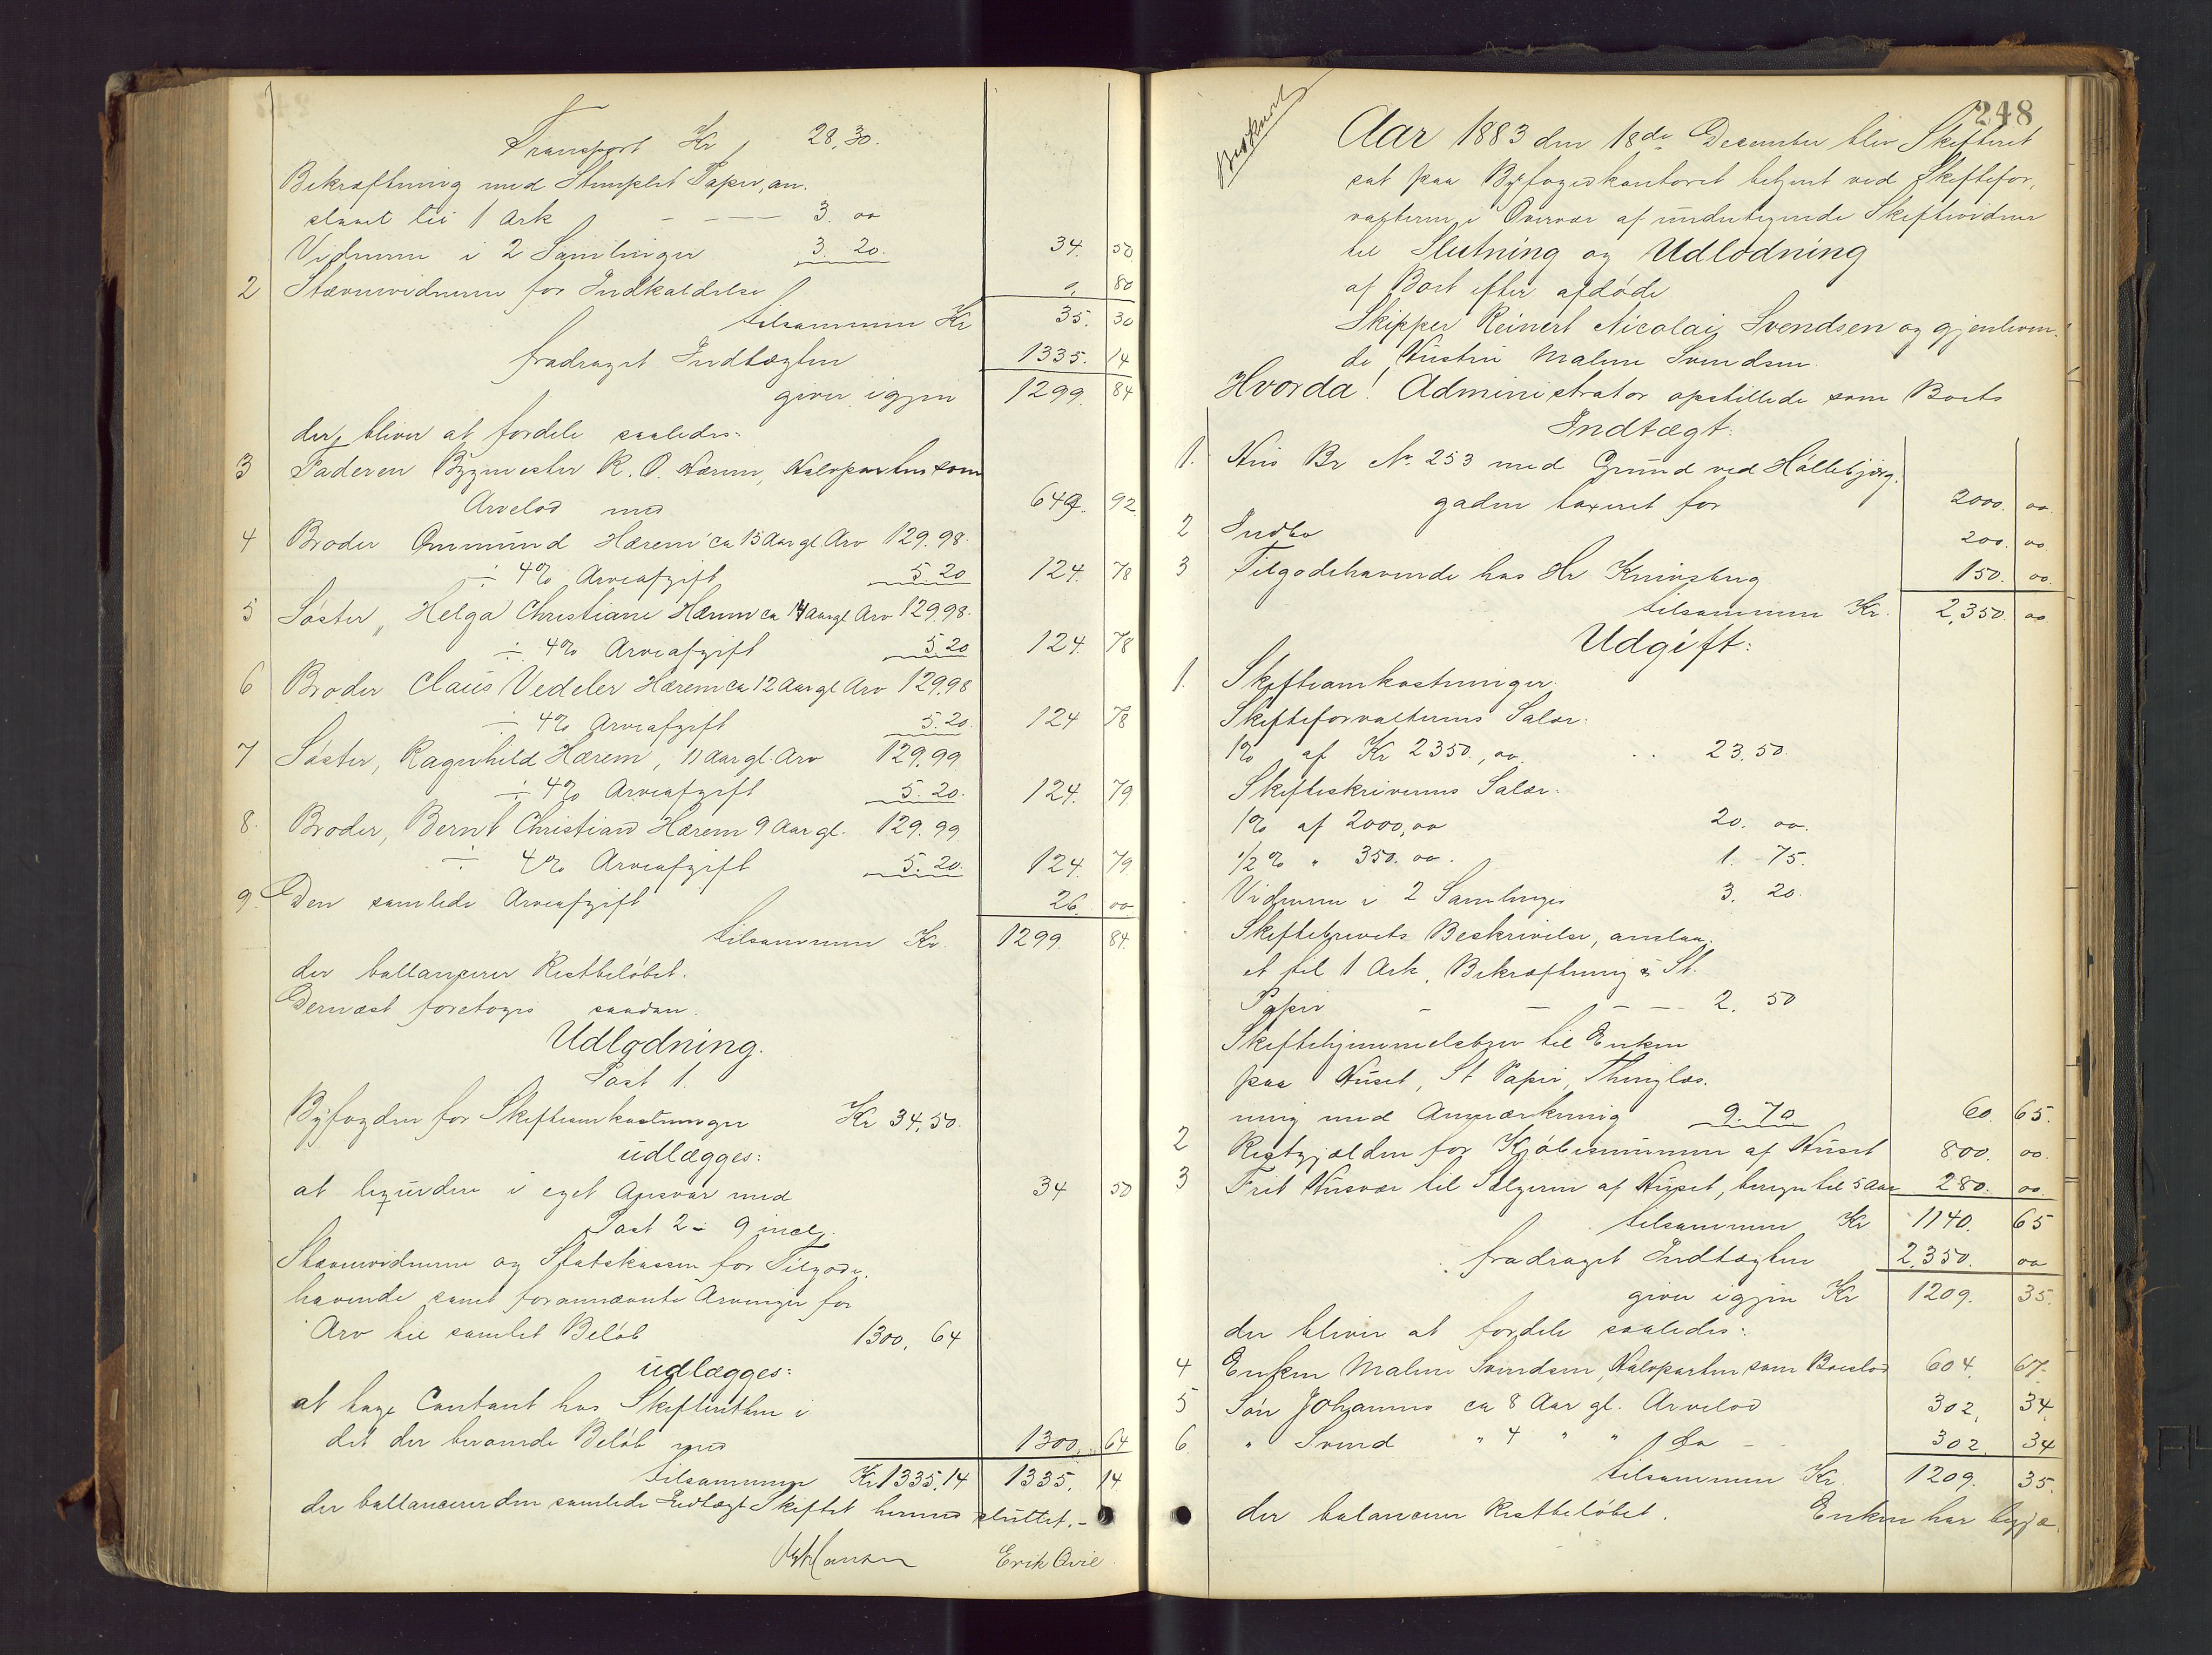 Transport Kr 28.30.
Bekræftning med Stemplet Papir, an-
slaaet til 1 Ark - - - - 3. oo
Vidnerne i 2 Samlinger 3. 20. 34. 50
2 Stævnevidnerne for Indkaldelse 0, 80
tilsammen Kr 35. 30
fradraget Indtægten 1335. 14
giver igjen 1299. 84
der bliver at fordele saaledes:
3 Faderen Bygmester R. O. Hærem, Halvparten som
Arvelod med 649. 92
4 Broder Ommund Hærem ca 15 Aar gl. Arv 129.98.
÷ 4% Arveafgift 5.20 124. 78
5 Søster, Helga Christiane Hærem ca 14 Aar gl Arv 129.98.
÷ 4% Arveafgift 5.20 124. 78
6 Broder Claus Vedeler Hærem ca 12 Aar gl Arv 129.98
÷ 4% Arveafgift 5.20. 124 78
7 Søster, Ragnhild Hærem, 11 Aar gl. Arv 129.99
÷ 4% Arveafgift 5.20. 124. 79
8. Broder, Bernt Christian Hærem 9 Aar gl. 129.99
÷ 4% Arveafgift 5.20. 124. 79
9. Den samlede Arveafgift 26. oo
tilsammen Kr. 1299. 84.
der ballancerer Restbeløbet.
Dernæst foretoges saadan
Udlodning.
Post 1.
Byfogden for Skifteomkostninger Kr 34.50.
udlægges:
at beregne i eget Ansvar med 34 50
Post 2 - 9 incl.
Stævnevidnerne og Statskassen for Tilgode-
havende samt forannævnte Arvinger for
Arv til samlet Beløb 1300. 64
udlægges:
at tage Contant hos Skifteretten i
det der beroende Beløb med 1300. 64
tilsammen Kr 1335.14 1335. 14
der ballancerer den samlede Indtægt Skiftet hermed sluttet. -
Erik Qvie
248
Aar 1883 den 18de December blev Skifteret
sat paa Byfogedkontoret betjent ved Skiftefor-
valteren i Overvær af undertegnede Skiftevidner
til Slutning og Udlodning
af Boet efter afdøde
Skipper Reinert Nicolai Svendsen og gjenleven-
de Hustru Malene Svendsen.
Hvorda! Administrator opstillede som Boets
Indtægt:
1. Hus Br No. 253 med Grund ved Høllebjerg-
gaden taxeret for 2000. oo.
2 Indbo 200. oo
3 Tilgodehavende hos Hr Knivsberg 150. oo.
tilsammen Kr. 2,350. oo
Udgift:
1. Skifteomkostninger.
Skifteforvalterens Salær:
1% af Kr 2350, oo. .. 23.50.
Skifteskriverens Salær:
1% af 2000,oo 20. oo.
1/2% " 350. oo. 1. 75.
Vidnerne i 2 Samlinger 3. 20.
Skiftebrevets Beskrivelse, anslaa-
et til 1 Ark, Bekræftning & St.
Papir - - - - 2. 50
Skiftehjemmelsbrev til Enken
paa Huset, St Papir, Thinglæs-
ning med Anmærkning 9.70 60. 65.
2 Restgjælden for Kjøbesummen af Huset 800. oo.
3 Frit Husvær til Sælgeren af Huset, beregn. til 5 Aar 280. oo
tilsammen Kr 1140. 65
fradraget Indtægten 2,350. oo
giver igjen Kr 1209. 35.
der bliver at fordele saaledes:
4 Enken Malene Svendsen, Halvparten som Boeslod 604. 67.
5 Søn Johannes ca 8 Aar gl. Arvelod 302, 34
6. " Svend " 4 " " do - - 302. 34
tilsammen Kr. 1209. 35.
der balancerer Restbeløbet. Enken har begjæ-